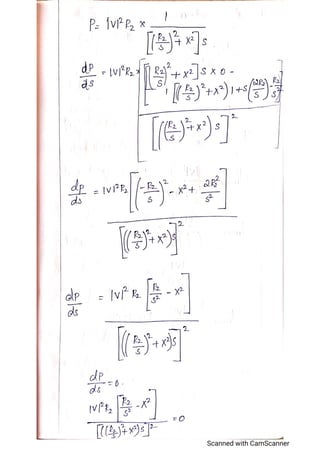 P = |V|² R₂ × 1 / [(R₂/S)² + X²] S
dP/dS = |V|² R₂ × [[(R₂/S)² + X²] S × 0 - [((R₂/S)² + X²) 1 + S (2R₂/S) · -R₂/S²]] / [((R₂/S)² + X²) S]²
dP/dS = |V|² R₂ [(-R₂/S)² - X² + 2R₂²/S²] / [((R₂/S)² + X²) S]²
dP/dS = |V|² R₂ [R₂/S² - X²] / [((R₂/S)² + X²) S]²
dP/dS = 0.
|V|² R₂ [R₂/S² - X²] / [((R₂/S)² + X²) S]² = 0
Scanned with CamScanner